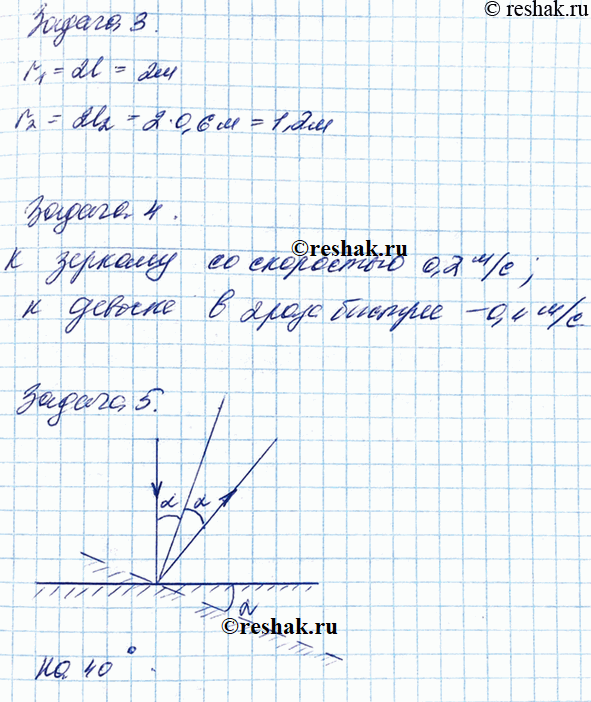 © reshak.ru
Задача 3.
r₁ = 2l = 2м
r₂ = 2l₂ = 2·0,6 м = 1,2м
Задача 4.
© reshak.ru
К зеркалу со скоростью 0,2 м/с;
к девочке в 2 раза быстрее – 0,4 м/с
Задача 5.
α α
α
© reshak.ru
на 40°.